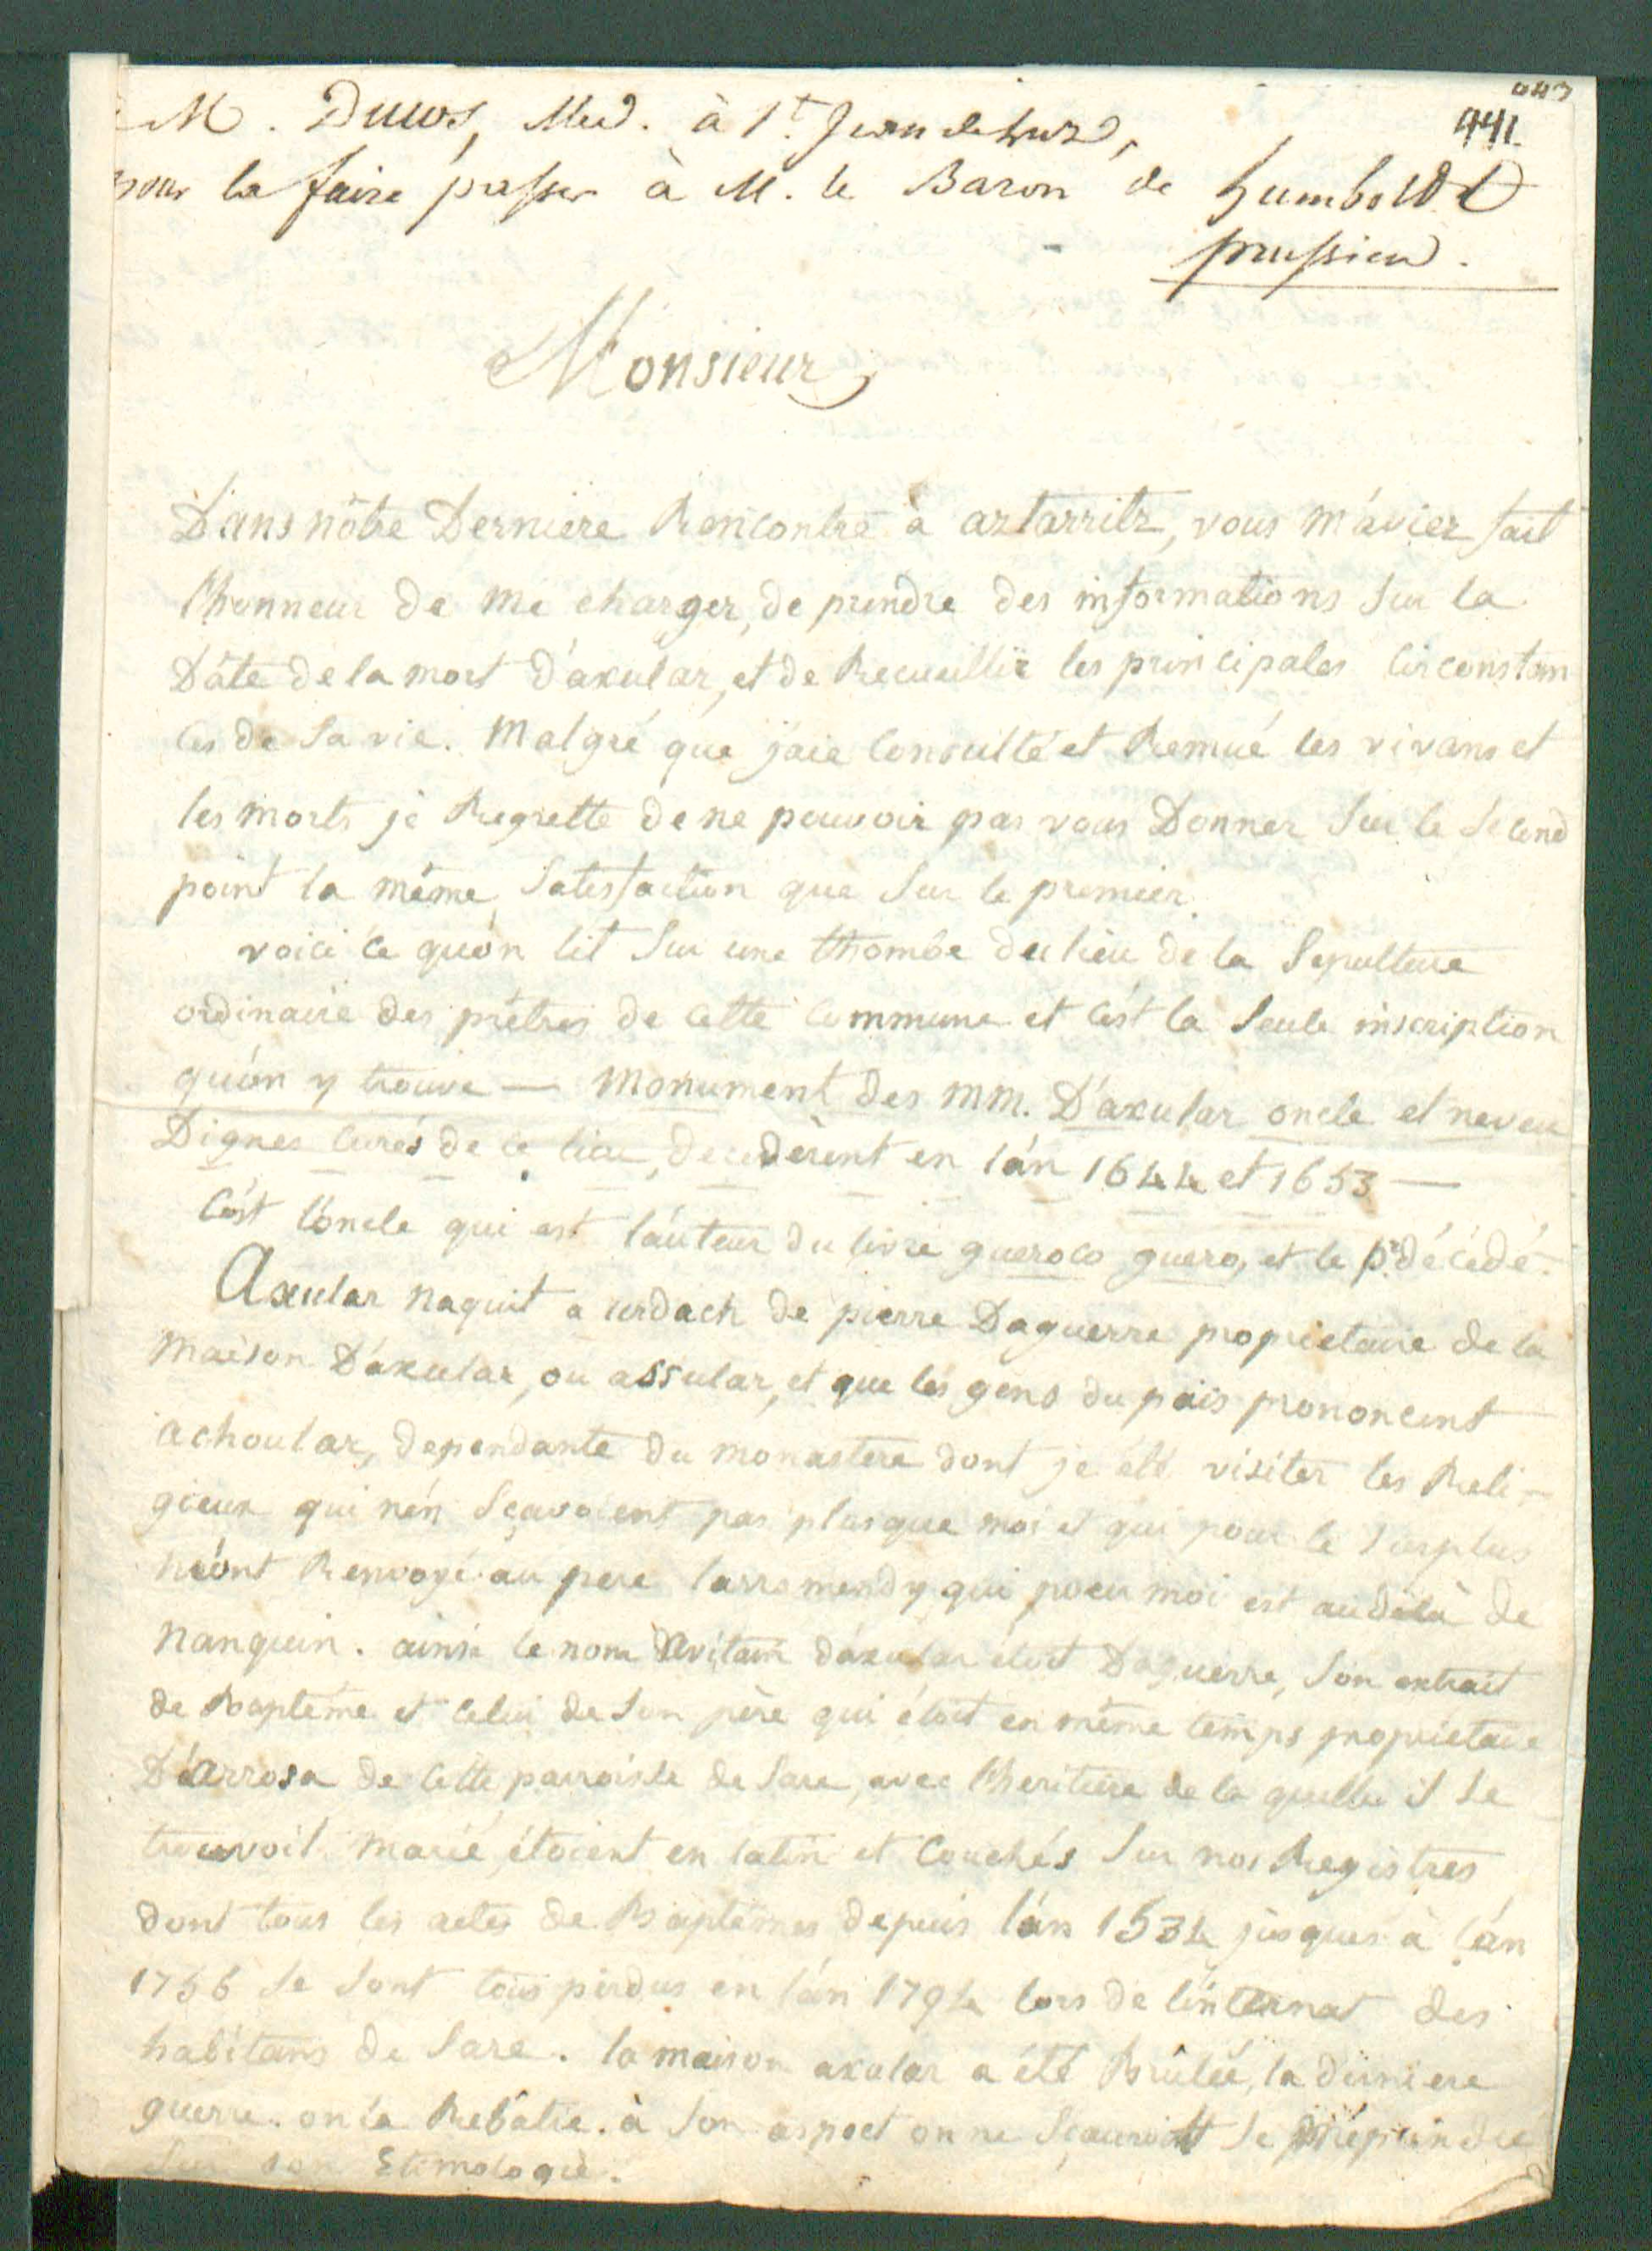 443
441.
M. Duclos, Med. à St. Jean de Luz,
pour la faire passer à M. le Baron de humboldt
prussien.
Monsieur
Dans nôtre Derniere Rencontre à aztarritz, vous m'aviez fait
l'honneur de me charger, de prendre des informations sur la
Dâte de la mort d'axular, et de Recueillir les principales circonstan
ces de sa vie. Malgré que j'aie consulté et Remué les vivans et
les morts je Regrette de ne pouvoir pas vous Donner sur le second
point la même satisfaction que sur le premier.
voici ce qu'on lit sur une thombe du lieu de la Sepulture
ordinaire des prêtres de cette commune et c'est la seule inscription
qu'on y trouve — Monument des MM. D'axular oncle et neveu
Dignes curés de ce lieu, decedèrent en l'an 1644 et 1653 —
C'est l'oncle qui est l'auteur du livre gueroco guero, et le pr. décédé.
Axular naquit a urdach de pierre Daguerre proprietaire de la
maison D'axular, ou assular, et que les gens du païs prononcent
achoular, dependante du monastere dont je été visiter les Reli-
gieux qui n'en sçavoient pas plus que moi et qui pour le surplus
m'ont Renvoyé au pere larromendy qui pour moi est au delà de
nanquin. ainsi le nom avitain d'axular étoit Daguerre, son extrait
de Baptême et celui de son père qui étoit en même temps proprietaire
D'arrosa de cette parroisse de Sare, avec l'heritiere de la quelle il se
trouvoit marié, étoient en latin et couchés sur nos Registres
dont tous les actes de Baptêmes depuis l'an 1534 jusques à l'an
1756 se sont tous perdus en l'an 1794 lors de l'internat des
habitans de Sare. la maison axular a été Brûlée, la derniere
guerre. on la Rebâtie. à son aspect on ne sçauroit se méprendre
sur son Etimologie.